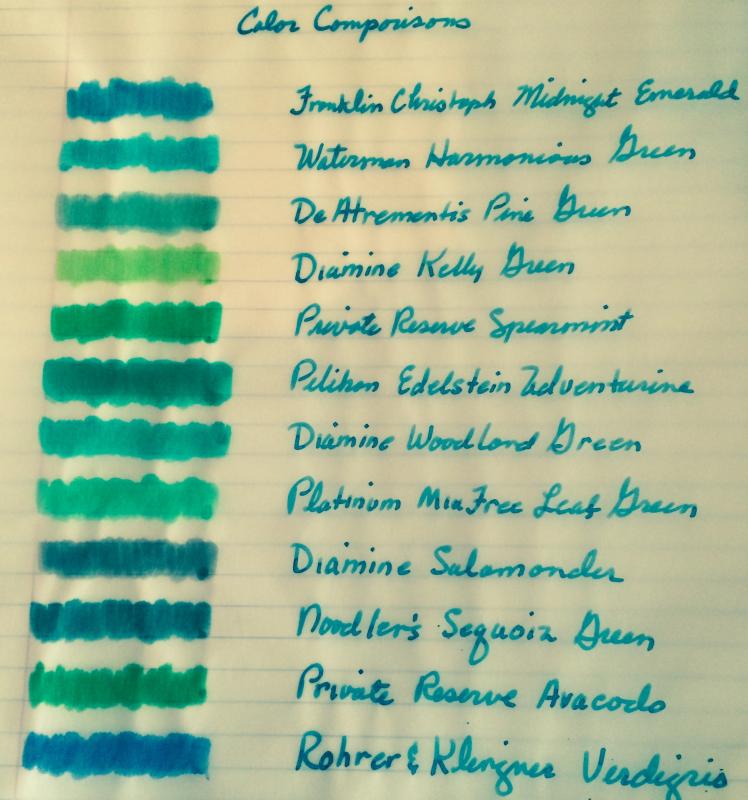 Color Comparisons
Franklin Christoph Midnight Emerald
Waterman Harmonious Green
De Atrementis Pine Green
Diamine Kelly Green
Private Reserve Spearmint
Pelikan Edelstein Adventurine
Diamine Woodland Green
Platinum Mix Free Leaf Green
Diamine Salamander
Noodler's Sequoia Green
Private Reserve Avacodo
Rohrer & Klingner Verdigris